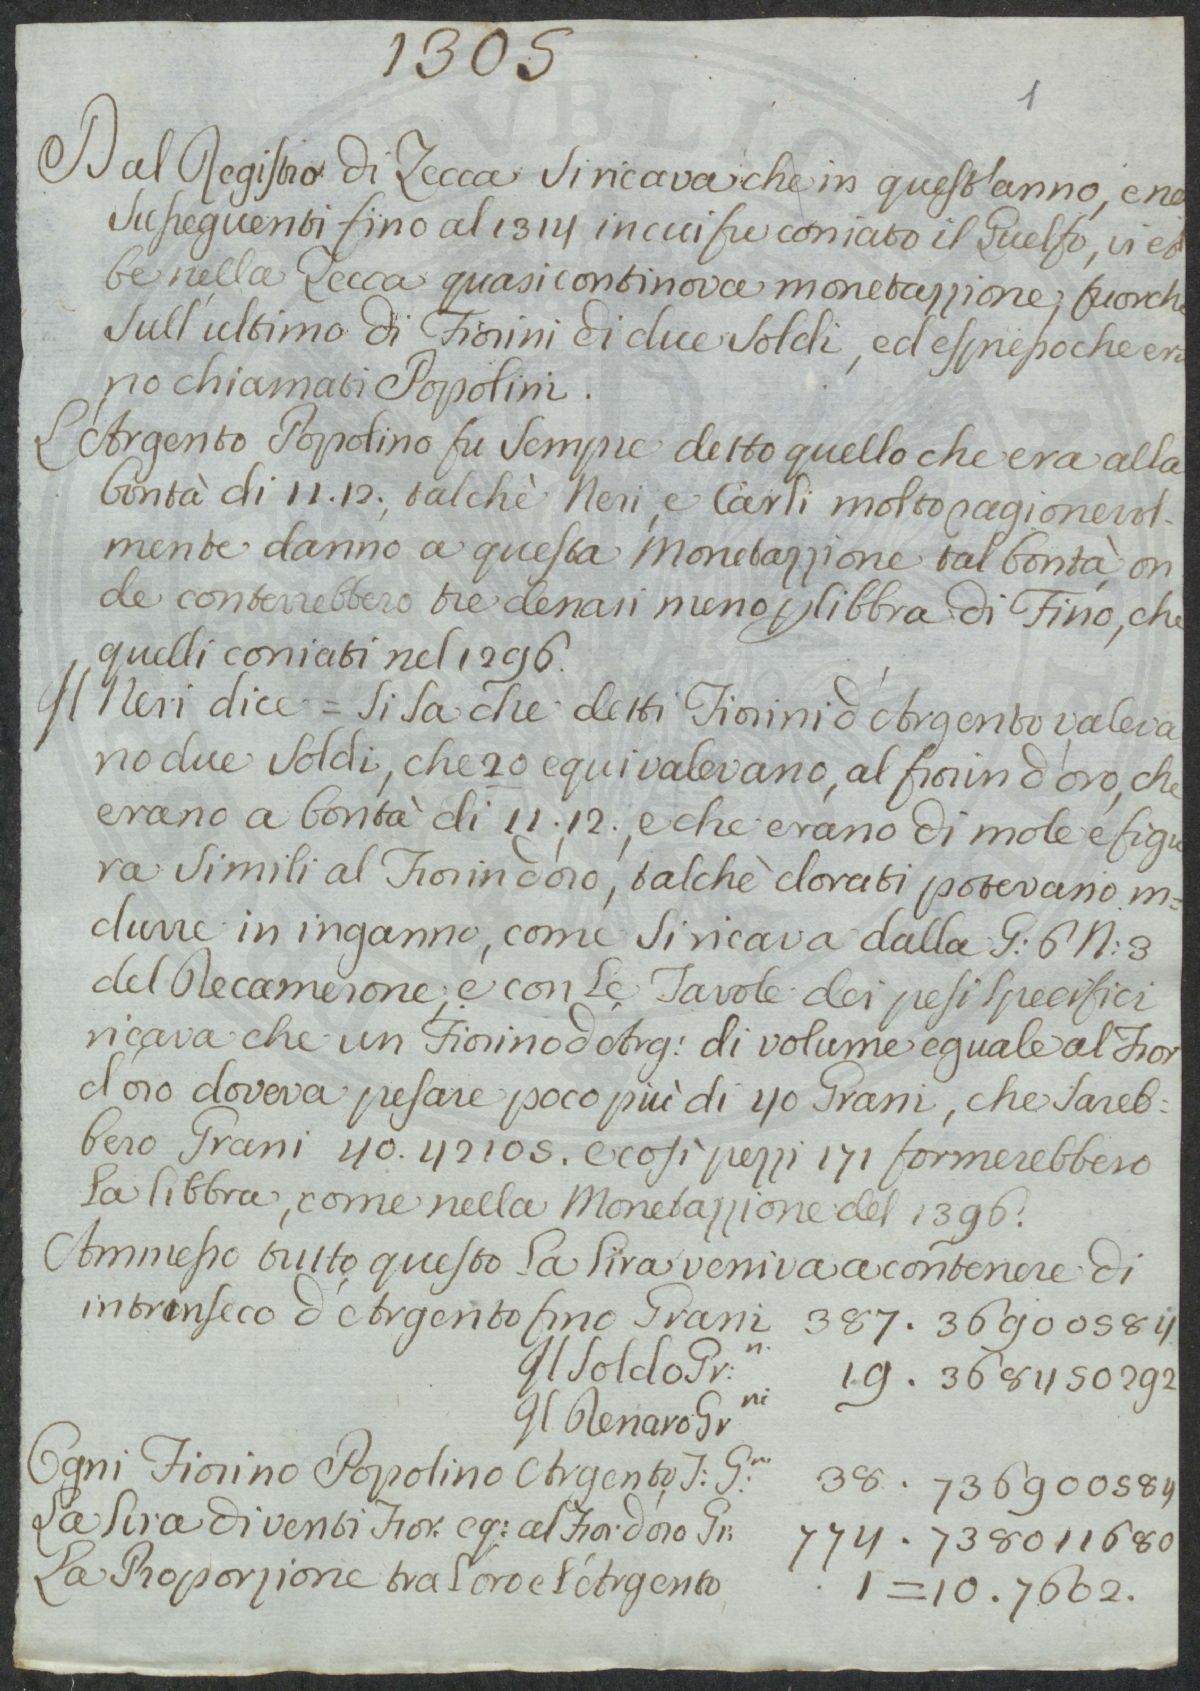 1305
1
Dal Registro di Zecca si ricava che in quest'anno, e ne
susseguenti fino al 1314 in cui fu coniato il Guelfo, vi eb
be nella Zecca quasi continova monetazzione, fuorche
sull'ultimo di Fiorini di due soldi, ed essi epoche era
no chiamati Popolini.
L'Argento Popolino fu sempre detto quello che era alla
bontà di 11.12; talchè Neri, e Carli molto ragionevol-
mente danno a questa Monetazzione tal bontà, on
de conterrebbero tre denari meno p libbra di Fino, che
quelli coniati nel 1296.
Il Neri dice = si sa che detti Fiorini d'Argento valeva
no due soldi, che 20 equivalevano, al fiorin d'oro, che
erano a bontà di 11.12., e che erano di mole e figu
ra simili al Fiorin d'oro, talchè dorati potevano in=
durre in inganno, come si ricava dalla G: 6 N: 3
del Decamerone, e con le Tavole dei pesi specifici
ricava che un Fiorino d'Arg: di volume eguale al Fior
d'oro doveva pesare poco più di 40 Grani, che sareb=
bero Grani 40.42105. e così pezzi 171 formerebbero
la libbra, come nella Monetazzione del 1396.
Ammesso tutto questo la lira veniva a contenere di
intrinseco d'Argento fino Grani 387.36900584
Il Soldo Gr:n 19.368450292
Il Denaro Grni
Ogni Fiorino Popolino Argento I: G:ni 38.736900584
La lira di venti Fior. eq: al Fior: d'oro Gr: 774.738011680
La Proporzione tra l'oro e l'Argento 1=10.7662.